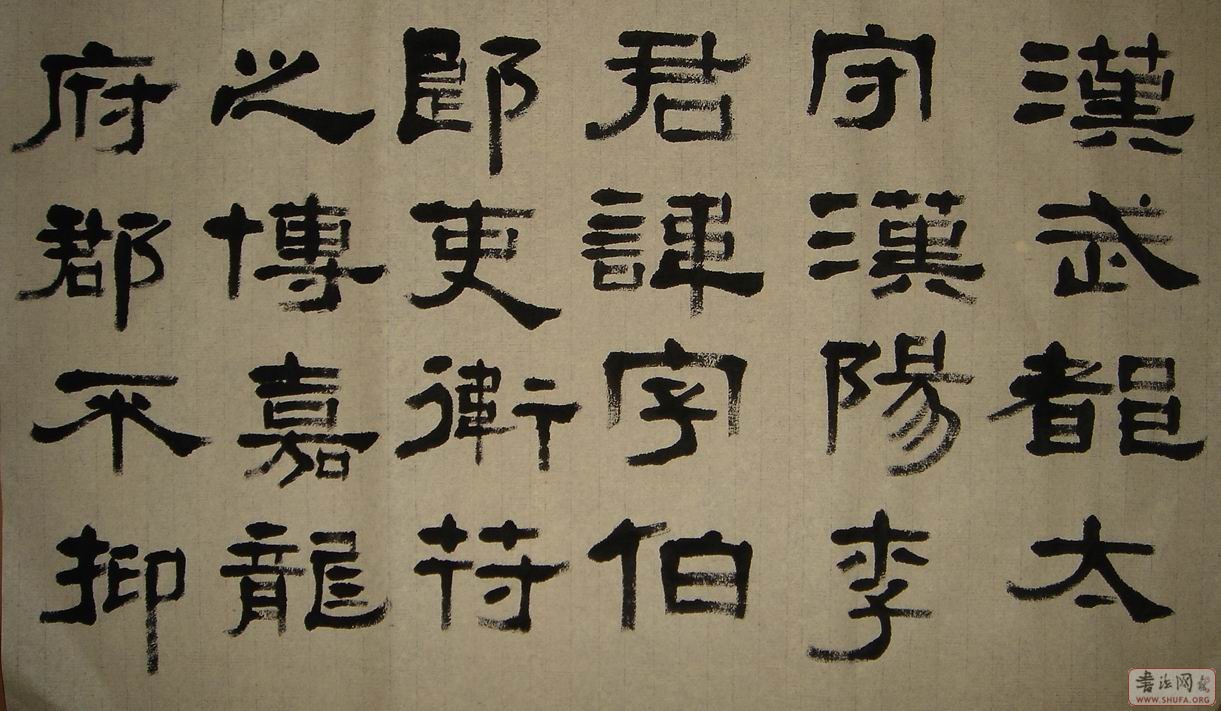 漢武都太
守漢陽李
君諱字伯
郎吏衛符
之博嘉龍
府郡不抑
書法网
WWW.SHUFA.ORG